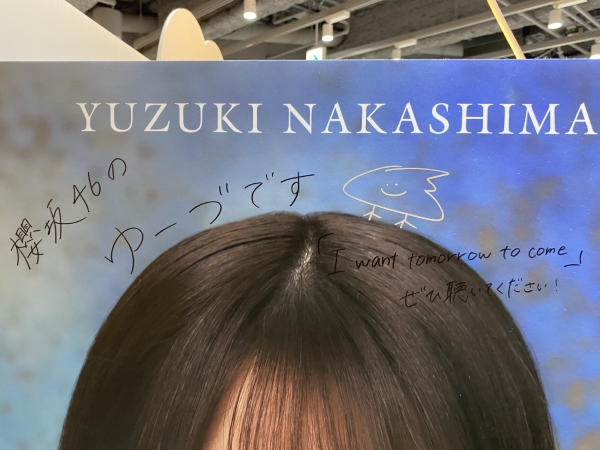 YUZUKI NAKASHIMA
櫻坂46の
ゆーづです
「I want tomorrow to come」
ぜひ聴いてください!